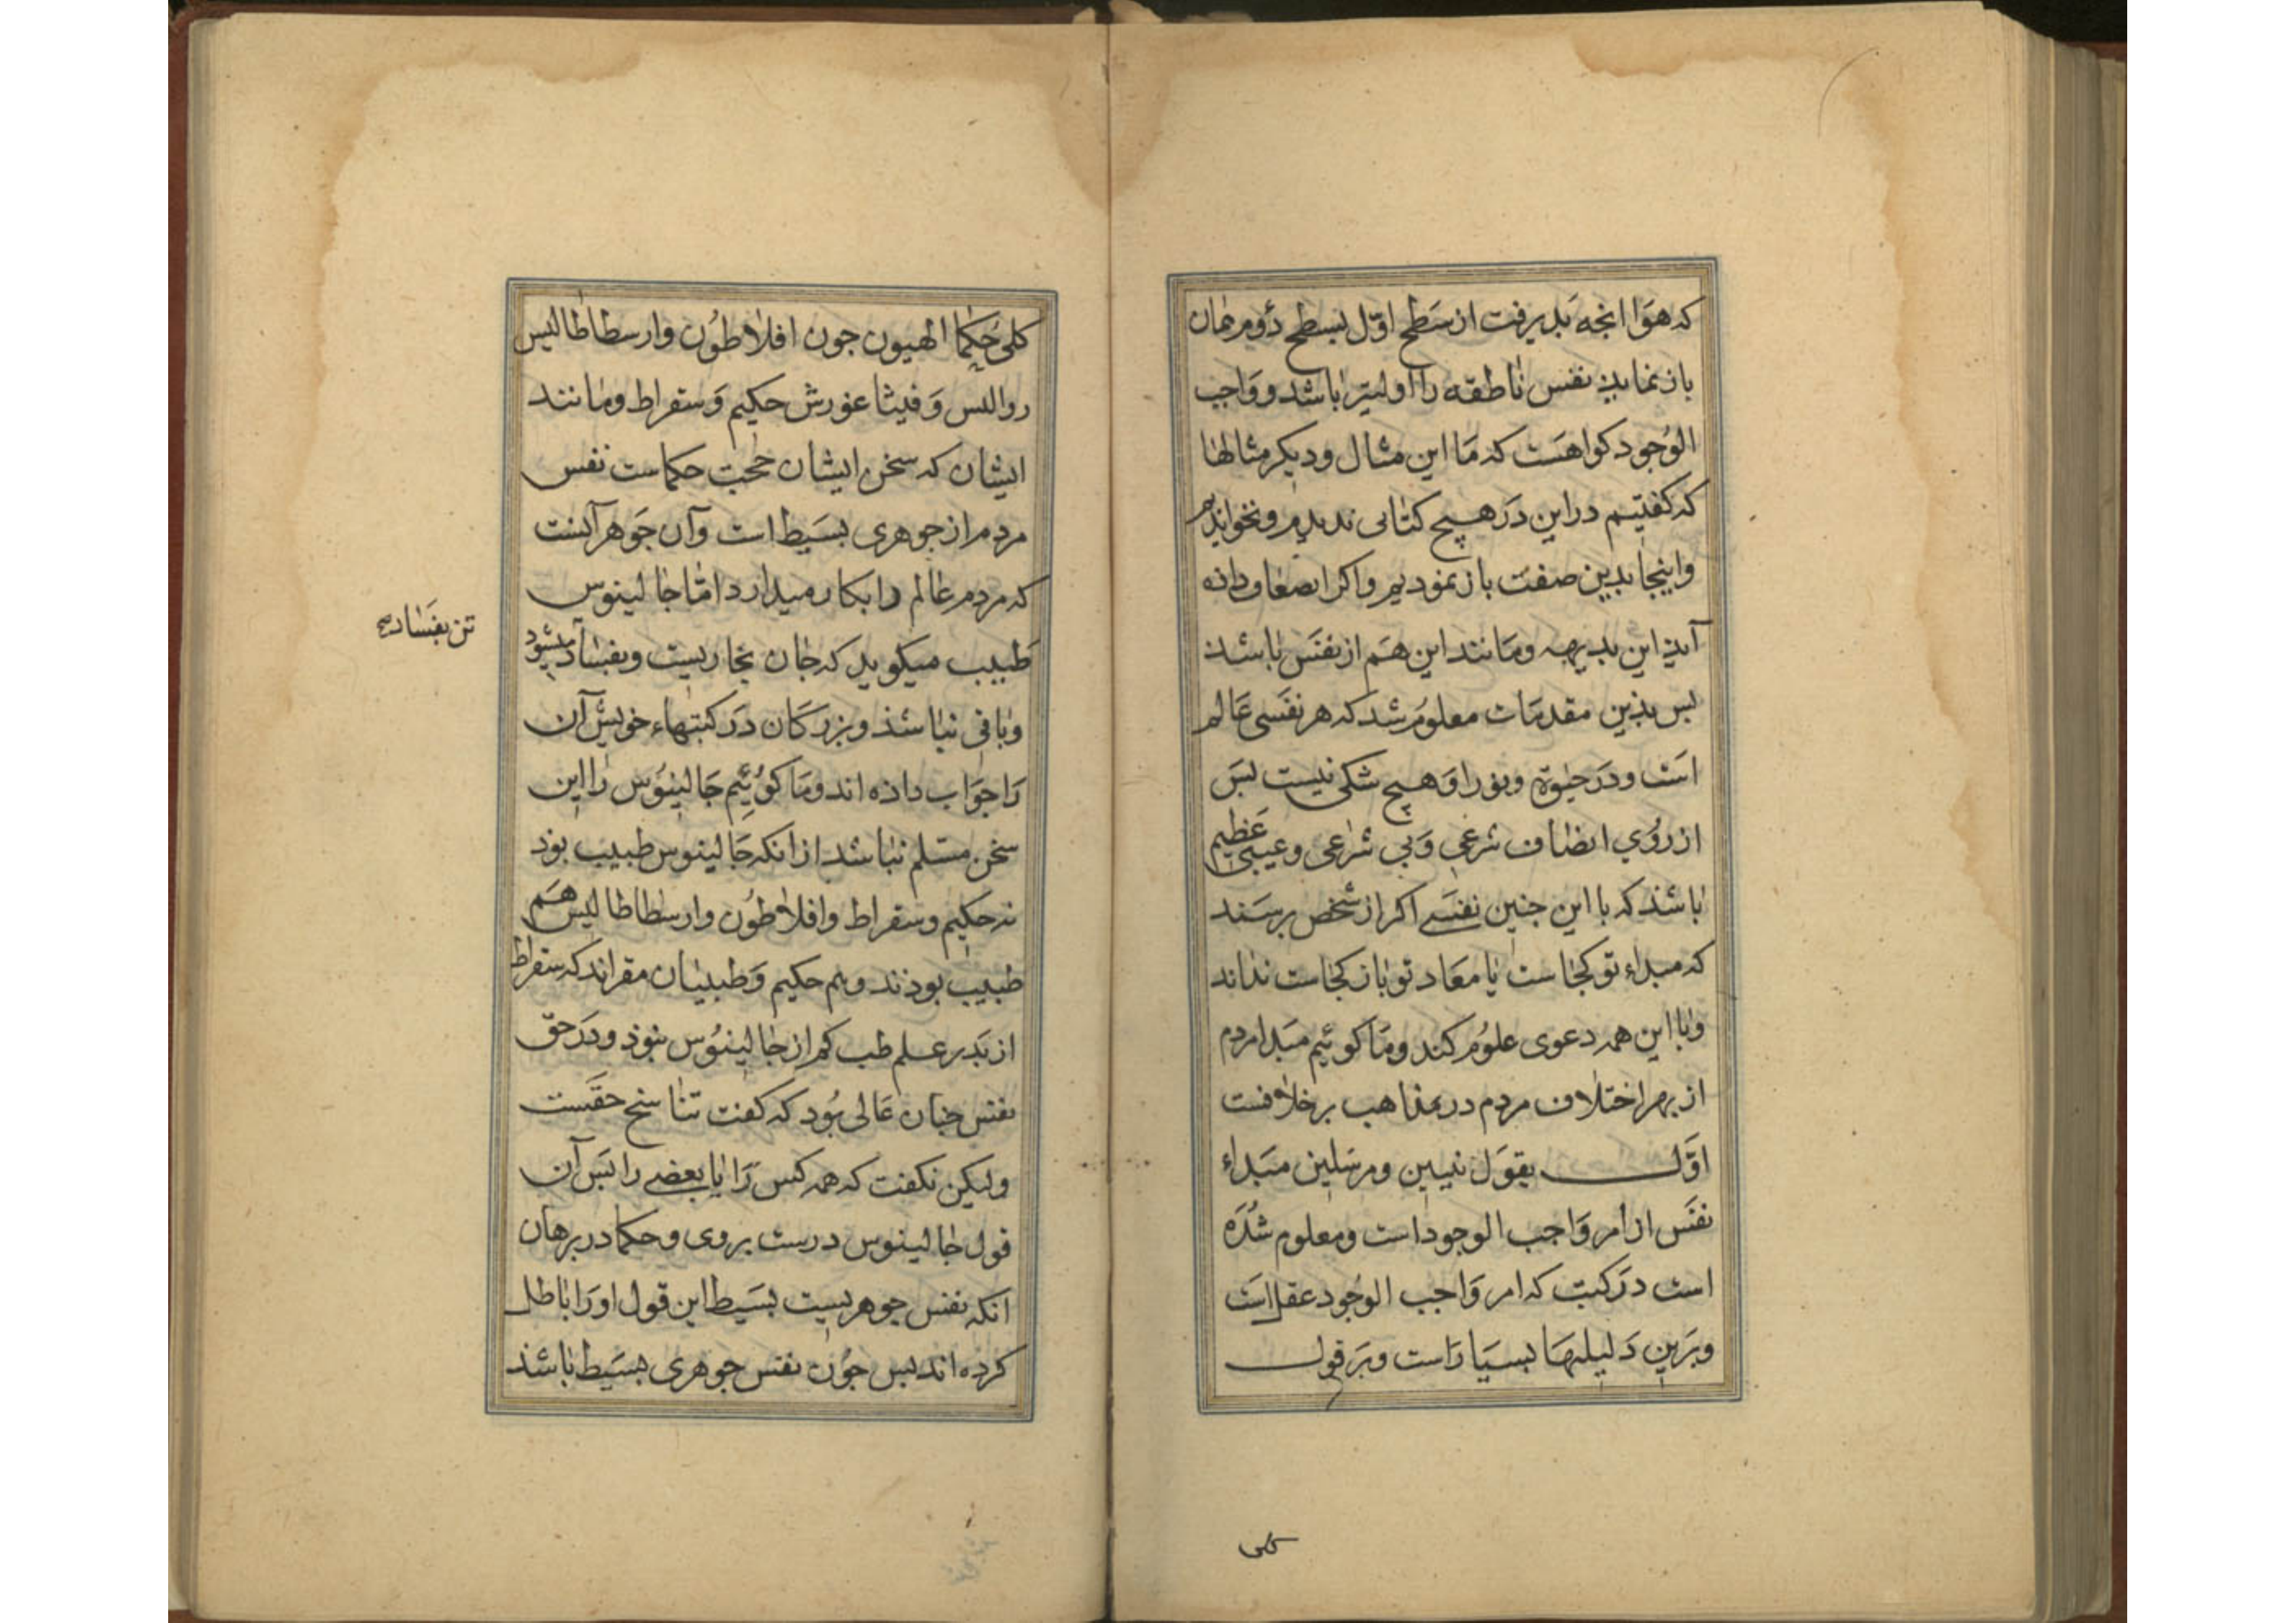 که هوا انجه بذیرفت از سطح اوّل بسطح دوم همان
باز نماید نفس ناطقه را اولیتر باشد و واجب
الوجود کواهست که ما این مثال و دیکر مثالها
که کفتیم در این در هیچ کتابی ندیدیم و نخواندیم
واینجا بدین صفت باز نمودیم واکر انصاف داذه
آید این بدیهه ومانند این هم از نفس باشد
بس بذین مقدمات معلوم شد که هر نفسی عالم
است و در حیوة ونور او هیچ شکی نیست بس
از روی انصاف شرعی وبی شرعی وعیبی عظیم
باشذ که با این جنین نفسے اکر از شخص برسند
که مبداء تو کجاست یا معاد تو باز کجاست نداند
وبا این همه دعوی علوم کند وما کوئیم مبدا مردم
از بهر اختلاف مردم در مذاهب بر خلافست
اوّل بقول نبیین ومرسلین مبداء
نفس از امر واجب الوجود است ومعلوم شده
است در کتب که امر واجب الوجود عقل است
وبرین دلیلها بسیار است وبر قول
کلی
کلی حکما الهیون جون افلاطون وارسطاطالیس
روالیس وفیثاغورش حکیم وسقراط ومانند
ایشان که سخن ایشان حجت حکماست نفس
مردم از جوهری بسیط است وآن جوهر آنست
که مردم عالم را بکار میدارد امّا جالینوس
طبیب میکوید که جان بخاریست وبفساد میشود
تن بفساد صح
وباقی نباشذ وبزرکان در کتبهاء خویش آن
را جواب داذه اند وما کوئیم جالینوس را این
سخن مسلم نباشد از انکه جالینوس طبیب بود
نه حکیم وسقراط وافلاطون وارسطاطالیس هم
طبیب بوذند وهم حکیم وطبیبان مقراند که سقراط
از بدر علم طب کم از جالینوس نبوذ ودر حق
نفس جنان عالی بود که کفت تناسخ حقست
ولیکن نکفت که همه کس را یا بعضے را بس آن
قول جالینوس درست بروی وحکما در برهان
انکه نفس جوهریست بسیط این قول اورا باطل
کرده اند بس جون نفس جوهری بسیط باشذ